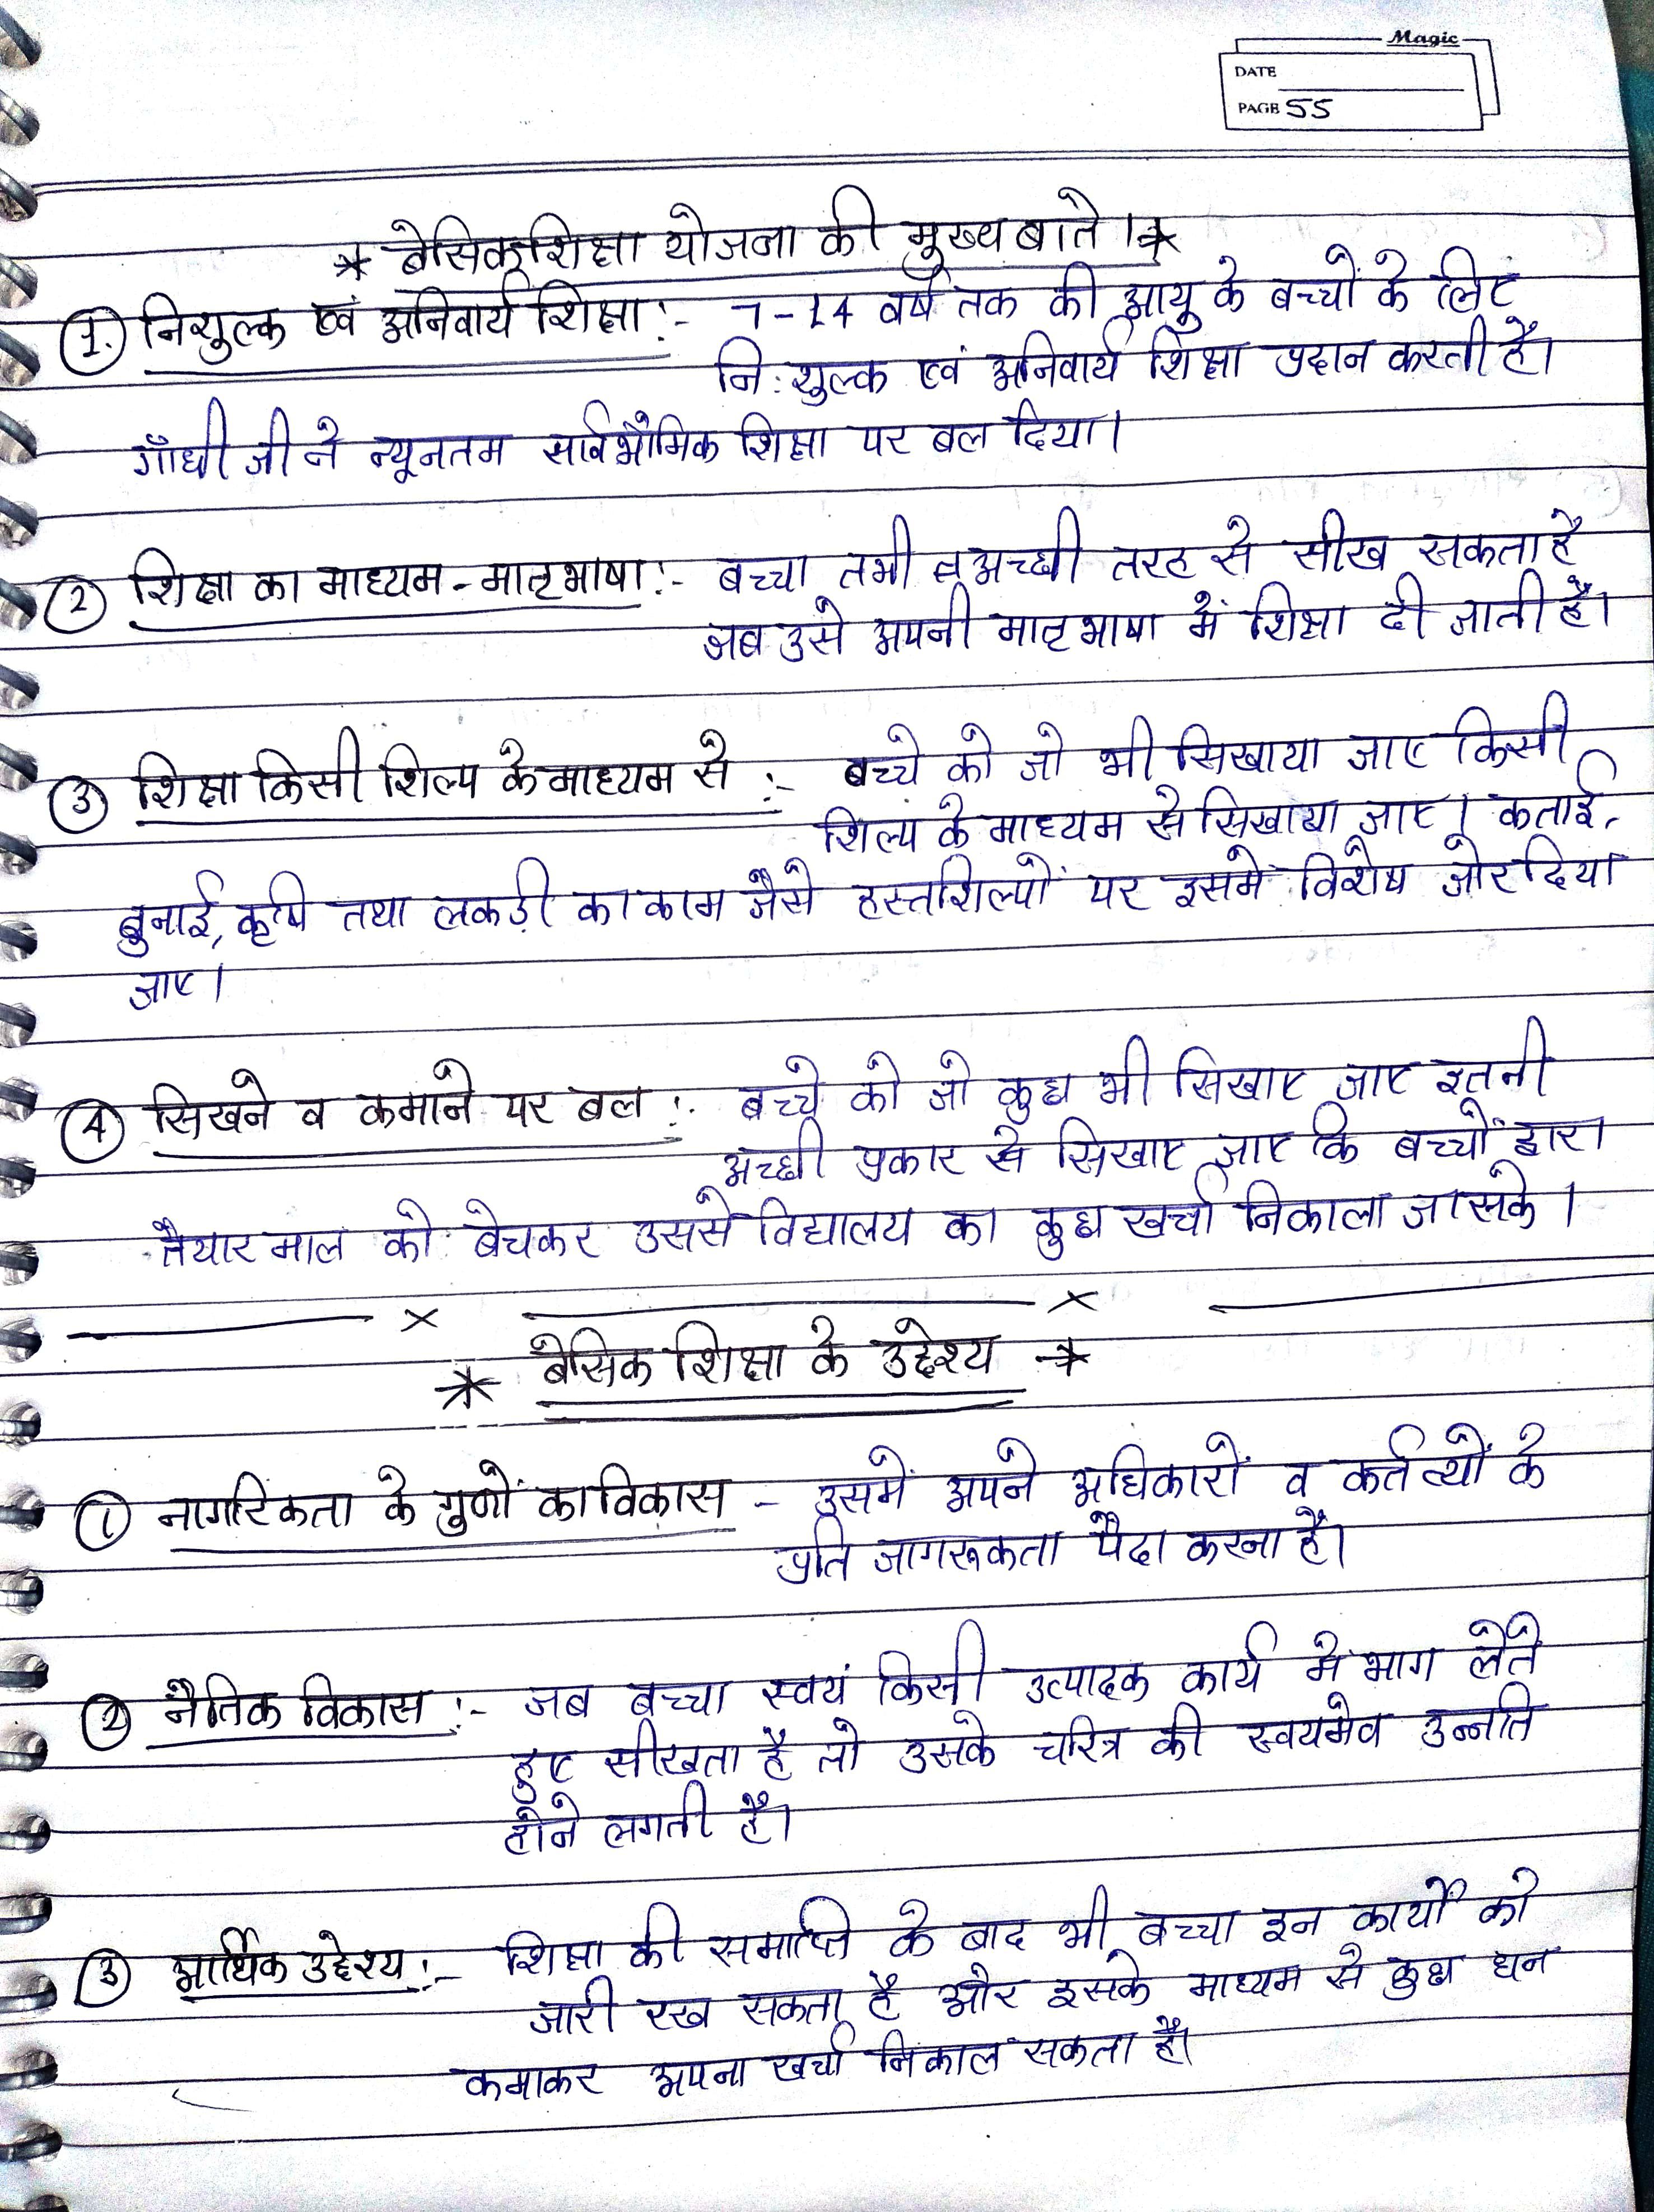 Magic
DATE
PAGE 55
* बेसिक शिक्षा योजना की मुख्य बाते। *
1. निशुल्क एवं अनिवार्य शिक्षा :- 7-14 वर्ष तक की आयु के बच्चों के लिए
नि:शुल्क एवं अनिवार्य शिक्षा प्रदान करती है।
गाँधी जी ने न्यूनतम सार्वभौमिक शिक्षा पर बल दिया।
2 शिक्षा का माध्यम - मातृभाषा :- बच्चा तभी अच्छी तरह से सीख सकता है
जब उसे अपनी मातृभाषा में शिक्षा दी जाती है।
3 शिक्षा किसी शिल्प के माध्यम से :- बच्चे को जो भी सिखाया जाए किसी
शिल्प के माध्यम से सिखाया जाए। कताई,
बुनाई, कृषि तथा लकड़ी का काम जैसे हस्तशिल्पों पर इसमें विशेष जोर दिया
जाए।
4 सिखने व कमाने पर बल :- बच्चे को जो कुछ भी सिखाए जाए इतनी
अच्छी प्रकार से सिखाए जाए कि बच्चों द्वारा
तैयार माल को बेचकर उससे विद्यालय का कुछ खर्चा निकाला जा सके।
* बेसिक शिक्षा के उद्देश्य *
1 नागरिकता के गुणों का विकास - उसमें अपने अधिकारों व कर्तव्यों के
प्रति जागरूकता पैदा करना है।
2 नैतिक विकास :- जब बच्चा स्वयं किसी उत्पादक कार्य में भाग लेते
हुए सीखता है तो उसके चरित्र की स्वयमेव उन्नति
होने लगती है।
3 आर्थिक उद्देश्य :- शिक्षा की समाप्ति के बाद भी बच्चा इन कार्यों को
जारी रख सकता है और इसके माध्यम से कुछ धन
कमाकर अपना खर्चा निकाल सकता है।